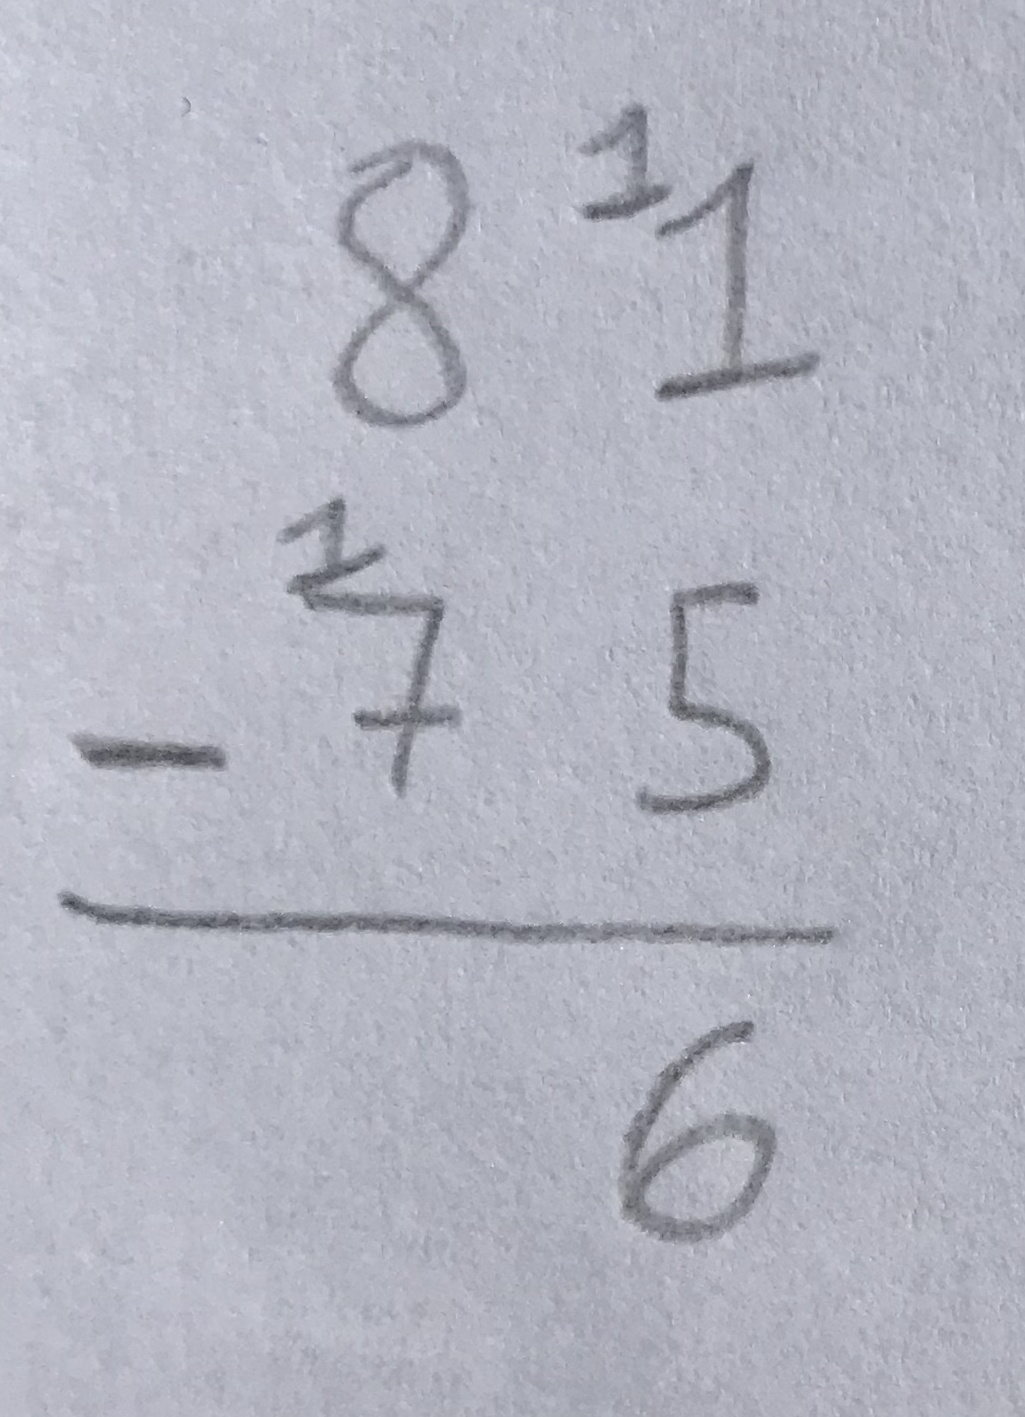 8 ¹1
- ¹7 5
6